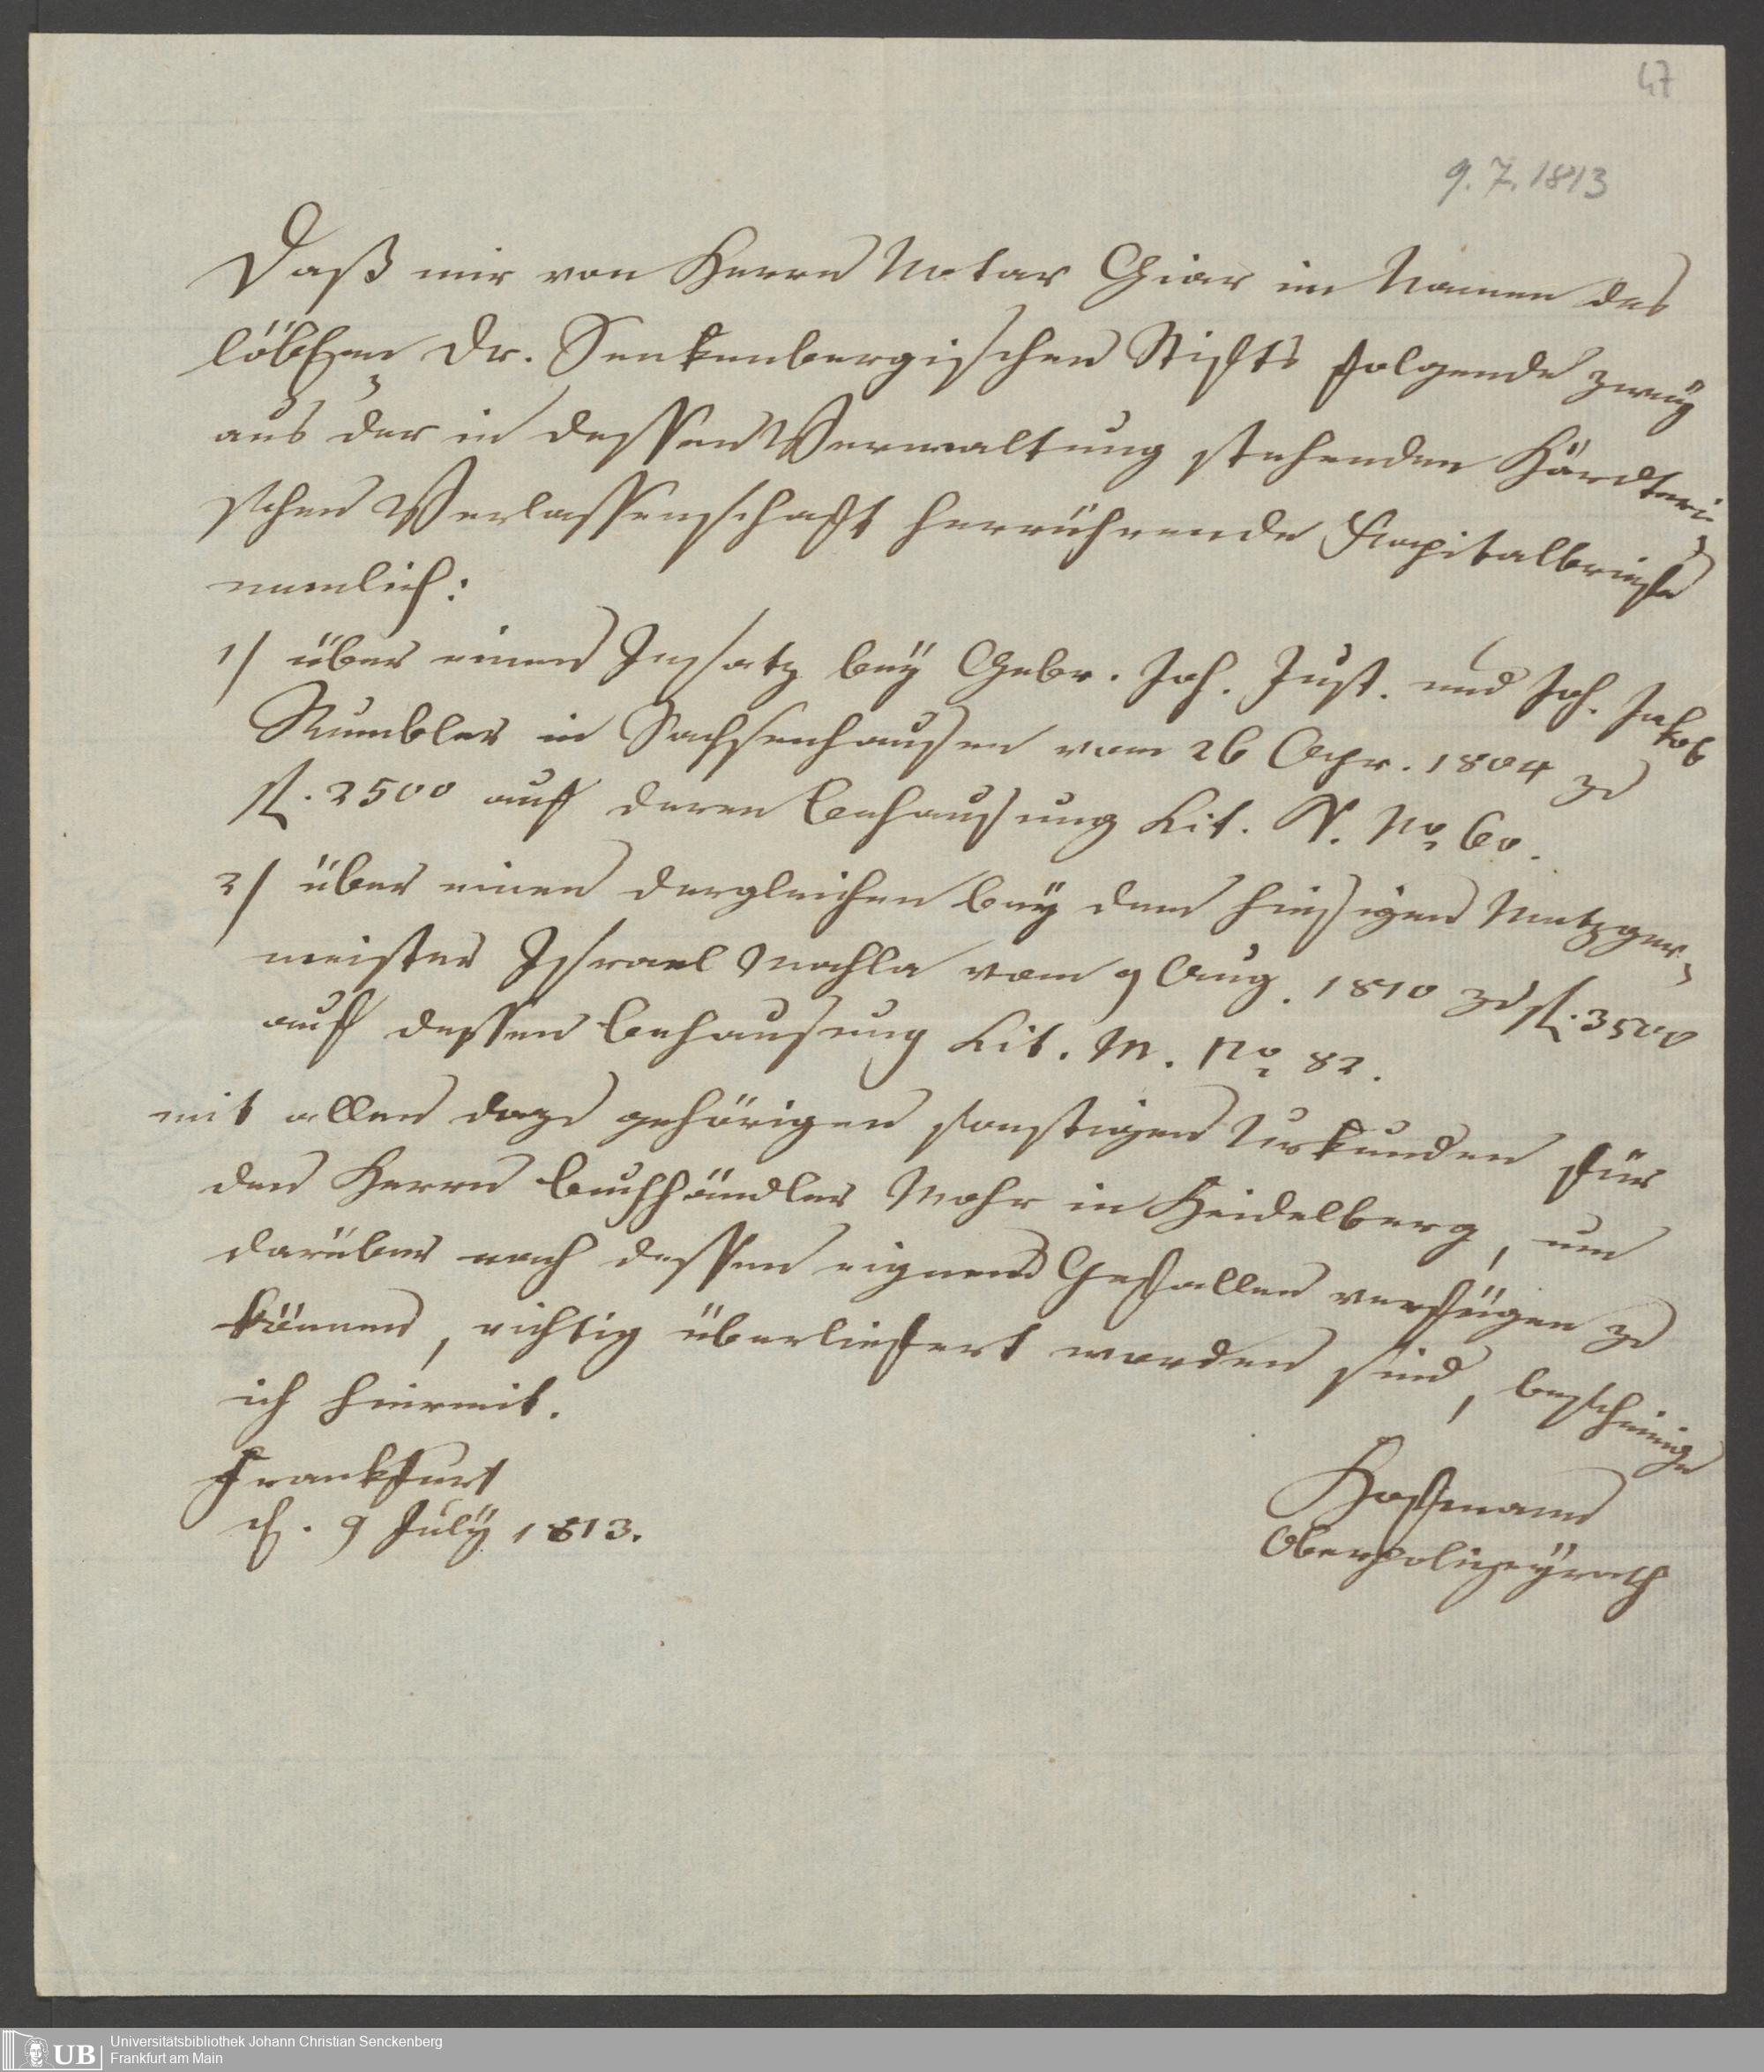 47
9. 7. 1813
Daß mir von Herrn Notar Chiar im Namen des
löbl. Dr. Senkenbergischen Stifts folgende zwey
aus der in dessen Verwaltung stehenden
schen Verlassenschaft herrührende Kapitalbriefe
nemlich:
1/ über einen Insatz bey Gebr. Joh. Just. und Joh. Jakob
Rumbler in Sachsenhausen vom 26 Apr. 1804 zu
fl. 2500 auf deren Behausung Lit. No 60.
2/ über einen dergleichen bey dem hiesigen Metzger-
meister Israel Mahla vom 9 Aug. 1810 zu fl. 3500
auf dessen Behausung Lit. M. No 82.
mit allen dazu gehörigen sonstigen Urkunden für
den Herrn Buchhändler Mohr in Heidelberg, um
darüber nach dessen eignem Gefallen verfügen zu
können, richtig überliefert worden sind, bescheinige
ich hiermit.
Frankfurt
d. 9 July 1813.
Hoffmann
Oberpolizeyrath
UB
Universitätsbibliothek Johann Christian Senckenberg
Frankfurt am Main